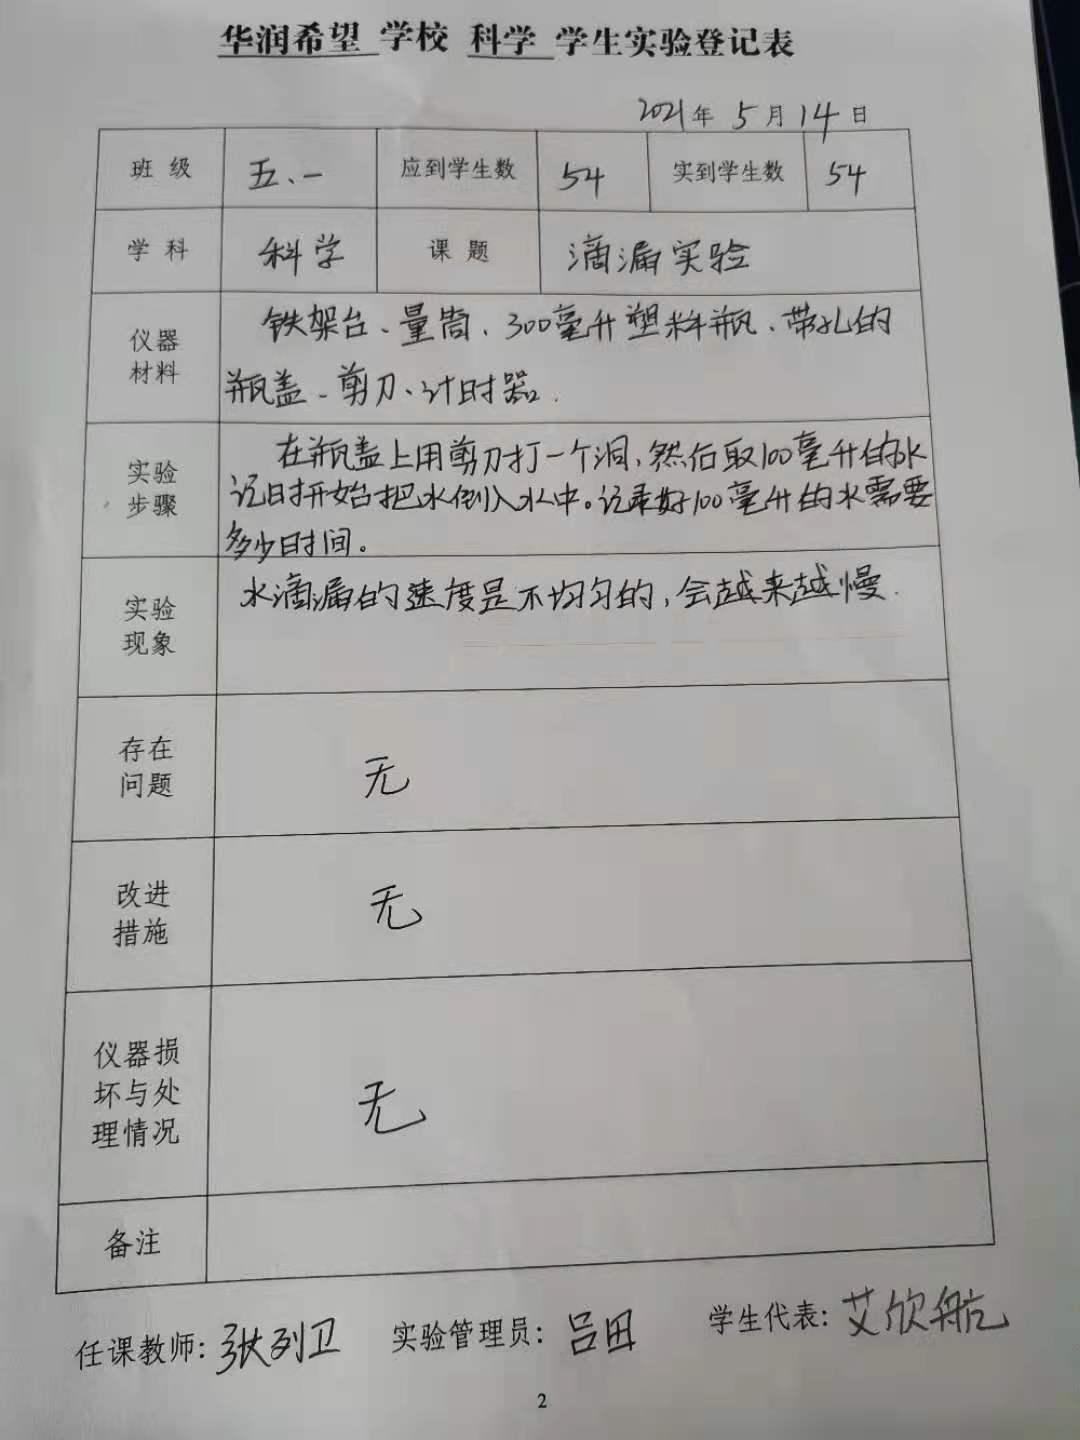 华润希望 学校 科学 学生实验登记表
2021年 5月14日
班级 五、一 应到学生数 54 实到学生数 54
学科 科学 课题 滴漏实验
仪器材料 铁架台、量筒、300毫升塑料瓶、带孔的
瓶盖、剪刀、计时器.
实验步骤 在瓶盖上用剪刀打一个洞,然后取100毫升的水
记时开始把水倒入水中。记录好100毫升的水需要
多少时间。
实验现象 水滴漏的速度是不均匀的,会越来越慢.
存在问题 无
改进措施 无
仪器损坏与处理情况 无
备注
任课教师: 张列卫 实验管理员: 吕田 学生代表: 艾欣航
2